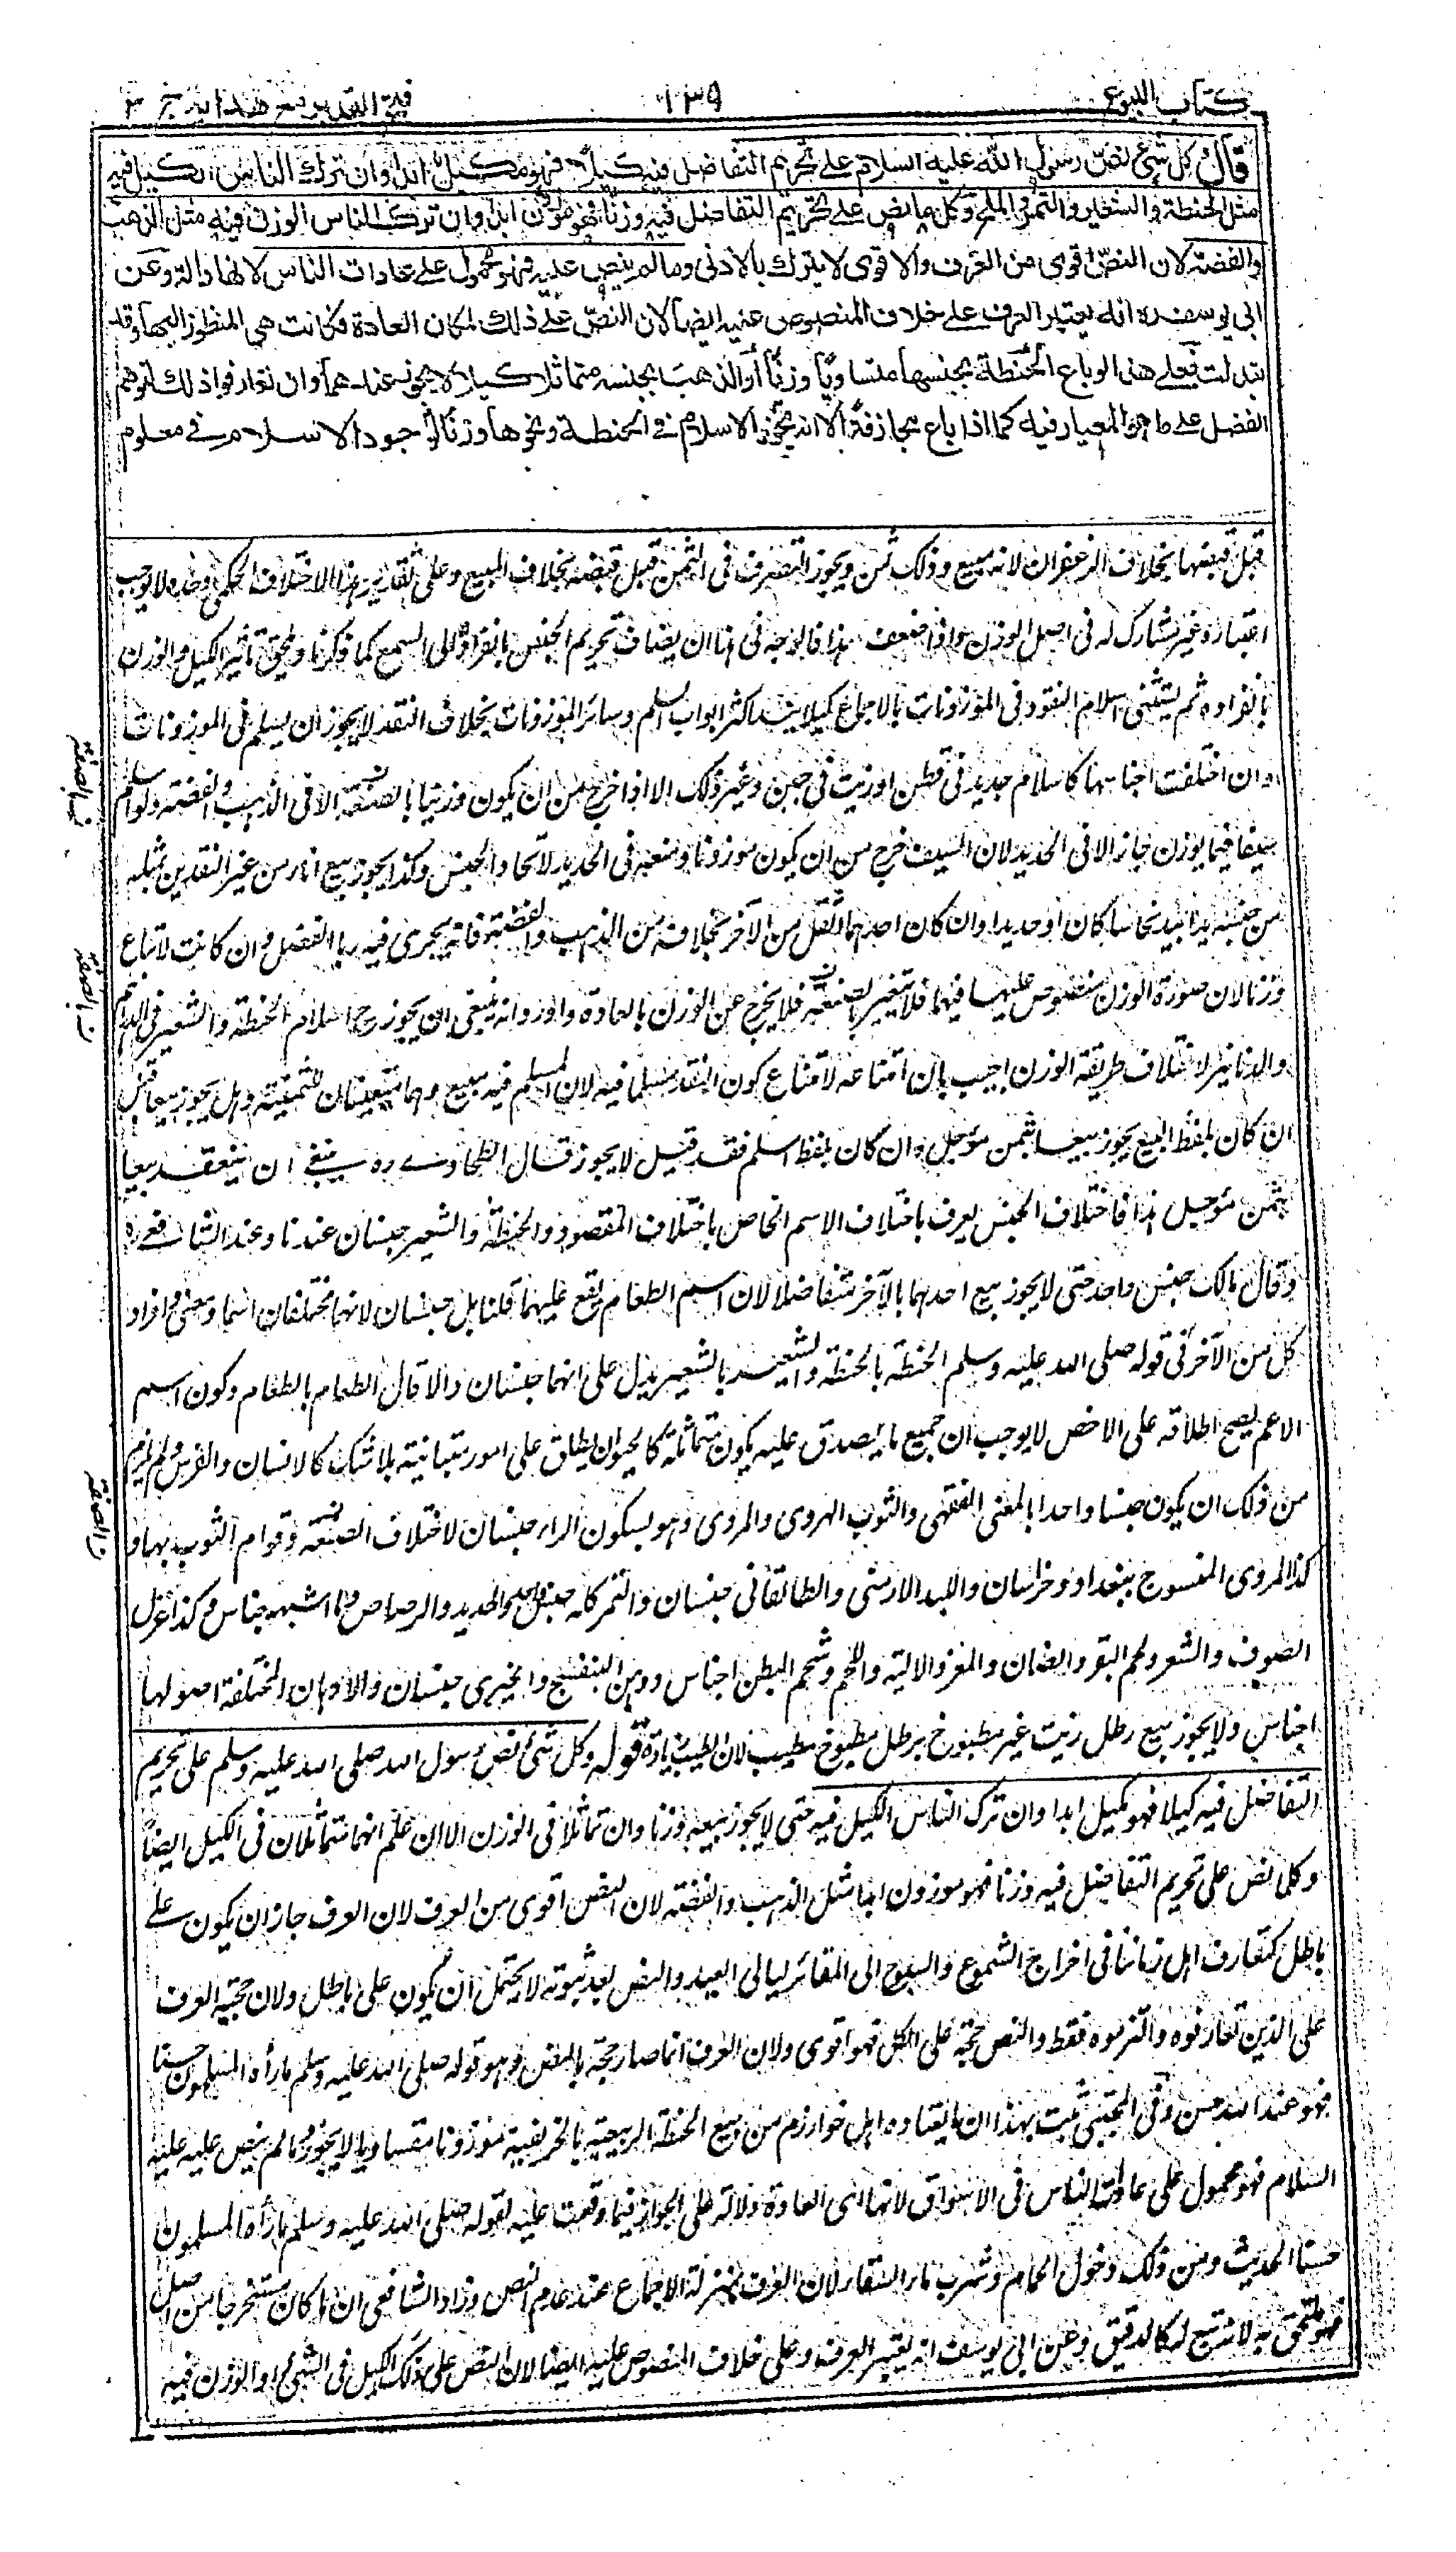 كتاب البيوع
١٣٩
فتح القدير مع هداية ج ٣
قال كل شئ نص رسول الله عليه السلام على تحريم التفاضل فيه كيلا فهو مكيل ابدا وان ترك الناس الكيل فيه
مثل الحنطة والشعير والتمر والملح وكل ما نص على تحريم التفاضل فيه وزنا فهو موزون ابدا وان ترك الناس الوزن فيه مثل الذهب
والفضة لان النص اقوى من العرف والاقوى لا يترك بالادنى وما لم ينص عليه فهو محمول على عادات الناس لانها دالة وعن
ابى يوسف ره انه يعتبر العرف على خلاف المنصوص عليه ايضا لان النص على ذلك لمكان العادة فكانت هى المنظور اليها وقد
تبدلت فعلى هذا لو باع الحنطة بجنسها متساويا وزنا او الذهب بجنسه متماثلا كيلا لا يجوز عندهما وان تعارفوا ذلك لتوهم
الفضل على ما هو المعيار فيه كما اذا باع مجازفة الا انه يجوز الاسلام فى الحنطة ونحوها وزنا لوجود الاسلام فى معلوم
قبل قبضها بخلاف الزعفران لانه مبيع وذلك ثمن ويجوز التصرف فى الثمن قبل قبضه بخلاف المبيع وعلى تقدير هذا الاختلاف الحكمى وحده لا يوجب
اعتباره غير مشارك له فى اصل الوزن واذا ضعف هذا فالوجه فى هذا ان يضاف تحريم الجنس بانفراده الى السمع كما ذكرنا ويلحق تأثير الكيل والوزن
بانفراده ثم يستثنى اسلام النقود فى الموزونات بالاجماع كيلا ينسد اكثر ابواب السلم وسائر الموزونات بخلاف النقد لا يجوز ان يسلم فى الموزونات
وان اختلفت اجناسها كاسلام حديد فى قطن او زيت فى جبن وغير ذلك الا اذا خرج من ان يكون وزنيا بالصنعة الا فى الذهب والفضة ولو اسلم
سيفا فيما يوزن جاز الا فى الحديد لان السيف خرج من ان يكون موزونا ومنعه فى الحديد لاتحاد الجنس وكذا يجوز بيع اناء من غير النقدين بمثله
من جنسه يدا بيد نحاسا كان او حديدا وان كان احدهما اثقل من الآخر بخلافه من الذهب والفضة فانه يجرى فيه ربا الفضل وان كانت لا تباع
وزنا لان صورة الوزن منصوص عليها فيهما فلا تتغير بالصنعة فلا يخرج عن الوزن بالعادة واورد انه ينبغى ان يجوز ح اسلام الحنطة والشعير فى الدراهم
والدنانير لاختلاف طريقة الوزن اجيب بان امتناعه لامتناع كون النقد مسلما فيه لان المسلم فيه مبيع وهما متعينان للثمنية وهل يجوز بيعا قيل
ان كان بلفظ البيع يجوز بيعا بثمن مؤجل وان كان بلفظ اسلم فقد قيل لا يجوز قال الطحاوى ره ينبغى ان ينعقد بيعا
بثمن مؤجل هذا فاختلاف الجنس يعرف باختلاف الاسم الخاص باختلاف المقصود والحنطة والشعير جنسان عندنا وعند الشافعى ره
وقال مالك جنس واحد حتى لا يجوز بيع احدهما بالآخر متفاضلا لان اسم الطعام يقع عليهما قلنا بل جنسان لانهما مختلفان اسما ومعنى وافراد
كل من الآخر فى قوله صلى الله عليه وسلم الحنطة بالحنطة والشعير بالشعير يدل على انهما جنسان والا قال الطعام بالطعام وكون اسم
الاعم يصح اطلاقه على الاخص لا يوجب ان جميع ما يصدق عليه يكون متماثلة كالحيوان يطلق على امور متباينة بلا شك كالانسان والفرس ولم يلزم
من ذلك ان يكون جنسا واحدا بالمعنى الفقهى والثوب الهروى والمروى وهو بسكون الراء جنسان لاختلاف الصنعة وقوام الثوب بها و
كذا المروى المنسوج ببغداد وخراسان واللبد الارمنى والطالقانى جنسان والتمر كله جنس واحد والحديد والرصاص والشبه اجناس وكذا غزل
الصوف والشعر ولحم البقر والضان والمعز والالية واللحم وشحم البطن اجناس ودهن البنفسج والخيرى جنسان والادهان المختلفة اصولها
اجناس ولا يجوز بيع رطل زيت غير مطبوخ برطل مطبوخ مطيب لان الطيب زيادة قوله وكل شئ نص رسول الله صلى الله عليه وسلم على تحريم
التفاضل فيه كيلا فهو مكيل ابدا وان ترك الناس الكيل فيه حتى لا يجوز بيعه وزنا وان تماثلا فى الوزن الا ان علم انهما متماثلان فى الكيل ايضا
وكل ما نص على تحريم التفاضل فيه وزنا فهو موزون ابدا مثل الذهب والفضة لان النص اقوى من العرف لان العرف جاز ان يكون على
باطل كتعارف اهل زماننا فى اخراج الشموع والسرج الى المقابر ليالى العيد والنص بعد ثبوته لا يحتمل ان يكون على باطل ولان حجية العرف
على الذين تعارفوه والتزموه فقط والنص حجة على الكل فهو اقوى ولان العرف انما صار حجة بالنص وهو قوله صلى الله عليه وسلم ما رأه المسلمون حسنا
فهو عند الله حسن وفى المجتبى ثبت بهذا ان ما يعتاده اهل خوارزم من بيع الحنطة الربيعية بالخريفية موزونا متساويا لا يجوز وما لم ينص عليه عليه
السلام فهو محمول على عادات الناس فى الاسواق لانها اى العادة دلالة على الجواز فيما وقعت عليه لقوله صلى الله عليه وسلم ما رأه المسلمون
حسنا الحديث ومن ذلك دخول الحمام وشرب ماء السقاء لان العرف بمنزلة الاجماع عند عدم النص وزاد الشافعى ان ما كان مستخرجا من اصل
فهو ملحق به لانه تبع له كالدقيق وعن ابى يوسف انه يعتبر العرف وعلى خلاف المنصوص عليه ايضا لان النص على ذلك الكيل فى الشئ او الوزن فيه
ن الصفة
ن الصفة
ن الصفة